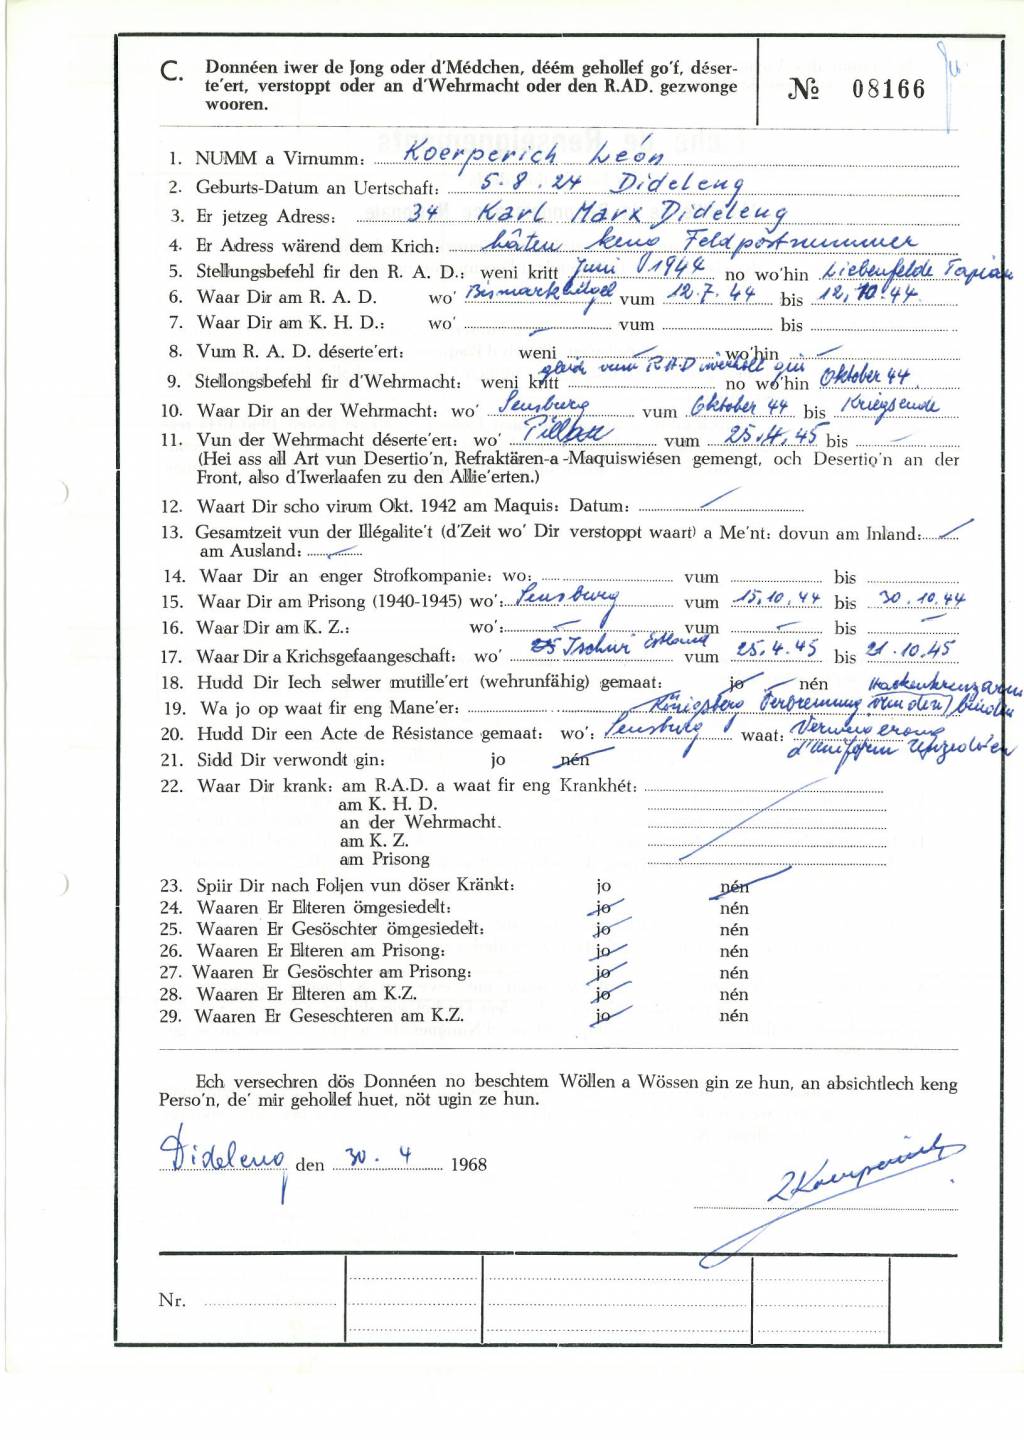 C. Donnéen iwer de Jong oder d'Médchen, déém gehollef go'f, déser-
te'ert, verstoppt oder an d'Wehrmacht oder den R.AD. gezwonge
wooren.
№ 08166
1. NUMM a Virnumm: Koerperich Léon
2. Geburts-Datum an Uertschaft: 5.8.24 Dideleng
3. Er jetzeg Adress: 34 Karl Marx Dideleng
4. Er Adress wärend dem Krich: hâten keng Feldpostnummer
5. Stellungsbefehl fir den R. A. D.: weni kritt Juni 1944 no wo'hin Liebenfelde Tapiau
6. Waar Dir am R. A. D. wo' Bismarkhügel vum 12.7.44 bis 12.10.44
7. Waar Dir am K. H. D.: wo' — vum bis
8. Vum R. A. D. déserte'ert: weni — wo'hin —
gleich vum R A D
9. Stellongsbefehl fir d'Wehrmacht: weni kritt no wo'hin Oktober 44
10. Waar Dir an der Wehrmacht: wo' Sensburg vum Oktober 44 bis Kriegsende
11. Vun der Wehrmacht déserte'ert: wo' Pillau vum 25.4.45 bis —
(Hei ass all Art vun Desertio'n, Refraktären-a-Maquiswiésen gemengt, och Desertio'n an der
Front, also d'Iwerlaafen zu den Allie'erten.)
12. Waart Dir scho virum Okt. 1942 am Maquis: Datum:
13. Gesamtzeit vun der Illégalite't (d'Zeit wo' Dir verstoppt waart) a Me'nt: dovun am Inland:
am Ausland:
14. Waar Dir an enger Strofkompanie: wo: vum bis
15. Waar Dir am Prisong (1940-1945) wo': Sensburg vum 15.10.44 bis 30.10.44
16. Waar Dir am K. Z.: wo': — vum — bis —
17. Waar Dir a Krichsgefaangeschaft: wo' Estland vum 25.4.45 bis 21.10.45
18. Hudd Dir Iech selwer mutille'ert (wehrunfähig) gemaat: jo nén Hackenkreuzarm
19. Wa jo op waat fir eng Mane'er: Königsberg Verbrennung vun den binden
20. Hudd Dir een Acte de Résistance gemaat: wo': Sensburg waat: Verweigerung
d'Uniform unzedo'en
21. Sidd Dir verwondt gin: jo nén
22. Waar Dir krank: am R.A.D. a waat fir eng Krankhét:
am K. H. D.
an der Wehrmacht.
am K. Z.
am Prisong
23. Spiir Dir nach Foljen vun döser Kränkt: jo nén
24. Waaren Er Elteren ömgesiedelt: jo nén
25. Waaren Er Gesöschter ömgesiedelt: jo nén
26. Waaren Er Elteren am Prisong: jo nén
27. Waaren Er Gesöschter am Prisong: jo nén
28. Waaren Er Elteren am K.Z. jo nén
29. Waaren Er Geseschteren am K.Z. jo nén
Ech versechren dös Donnéen no beschtem Wöllen a Wössen gin ze hun, an absichtlech keng
Perso'n, de' mir gehollef huet, nöt ugin ze hun.
Dideleng den 30.4 1968
LKoerperich
Nr.